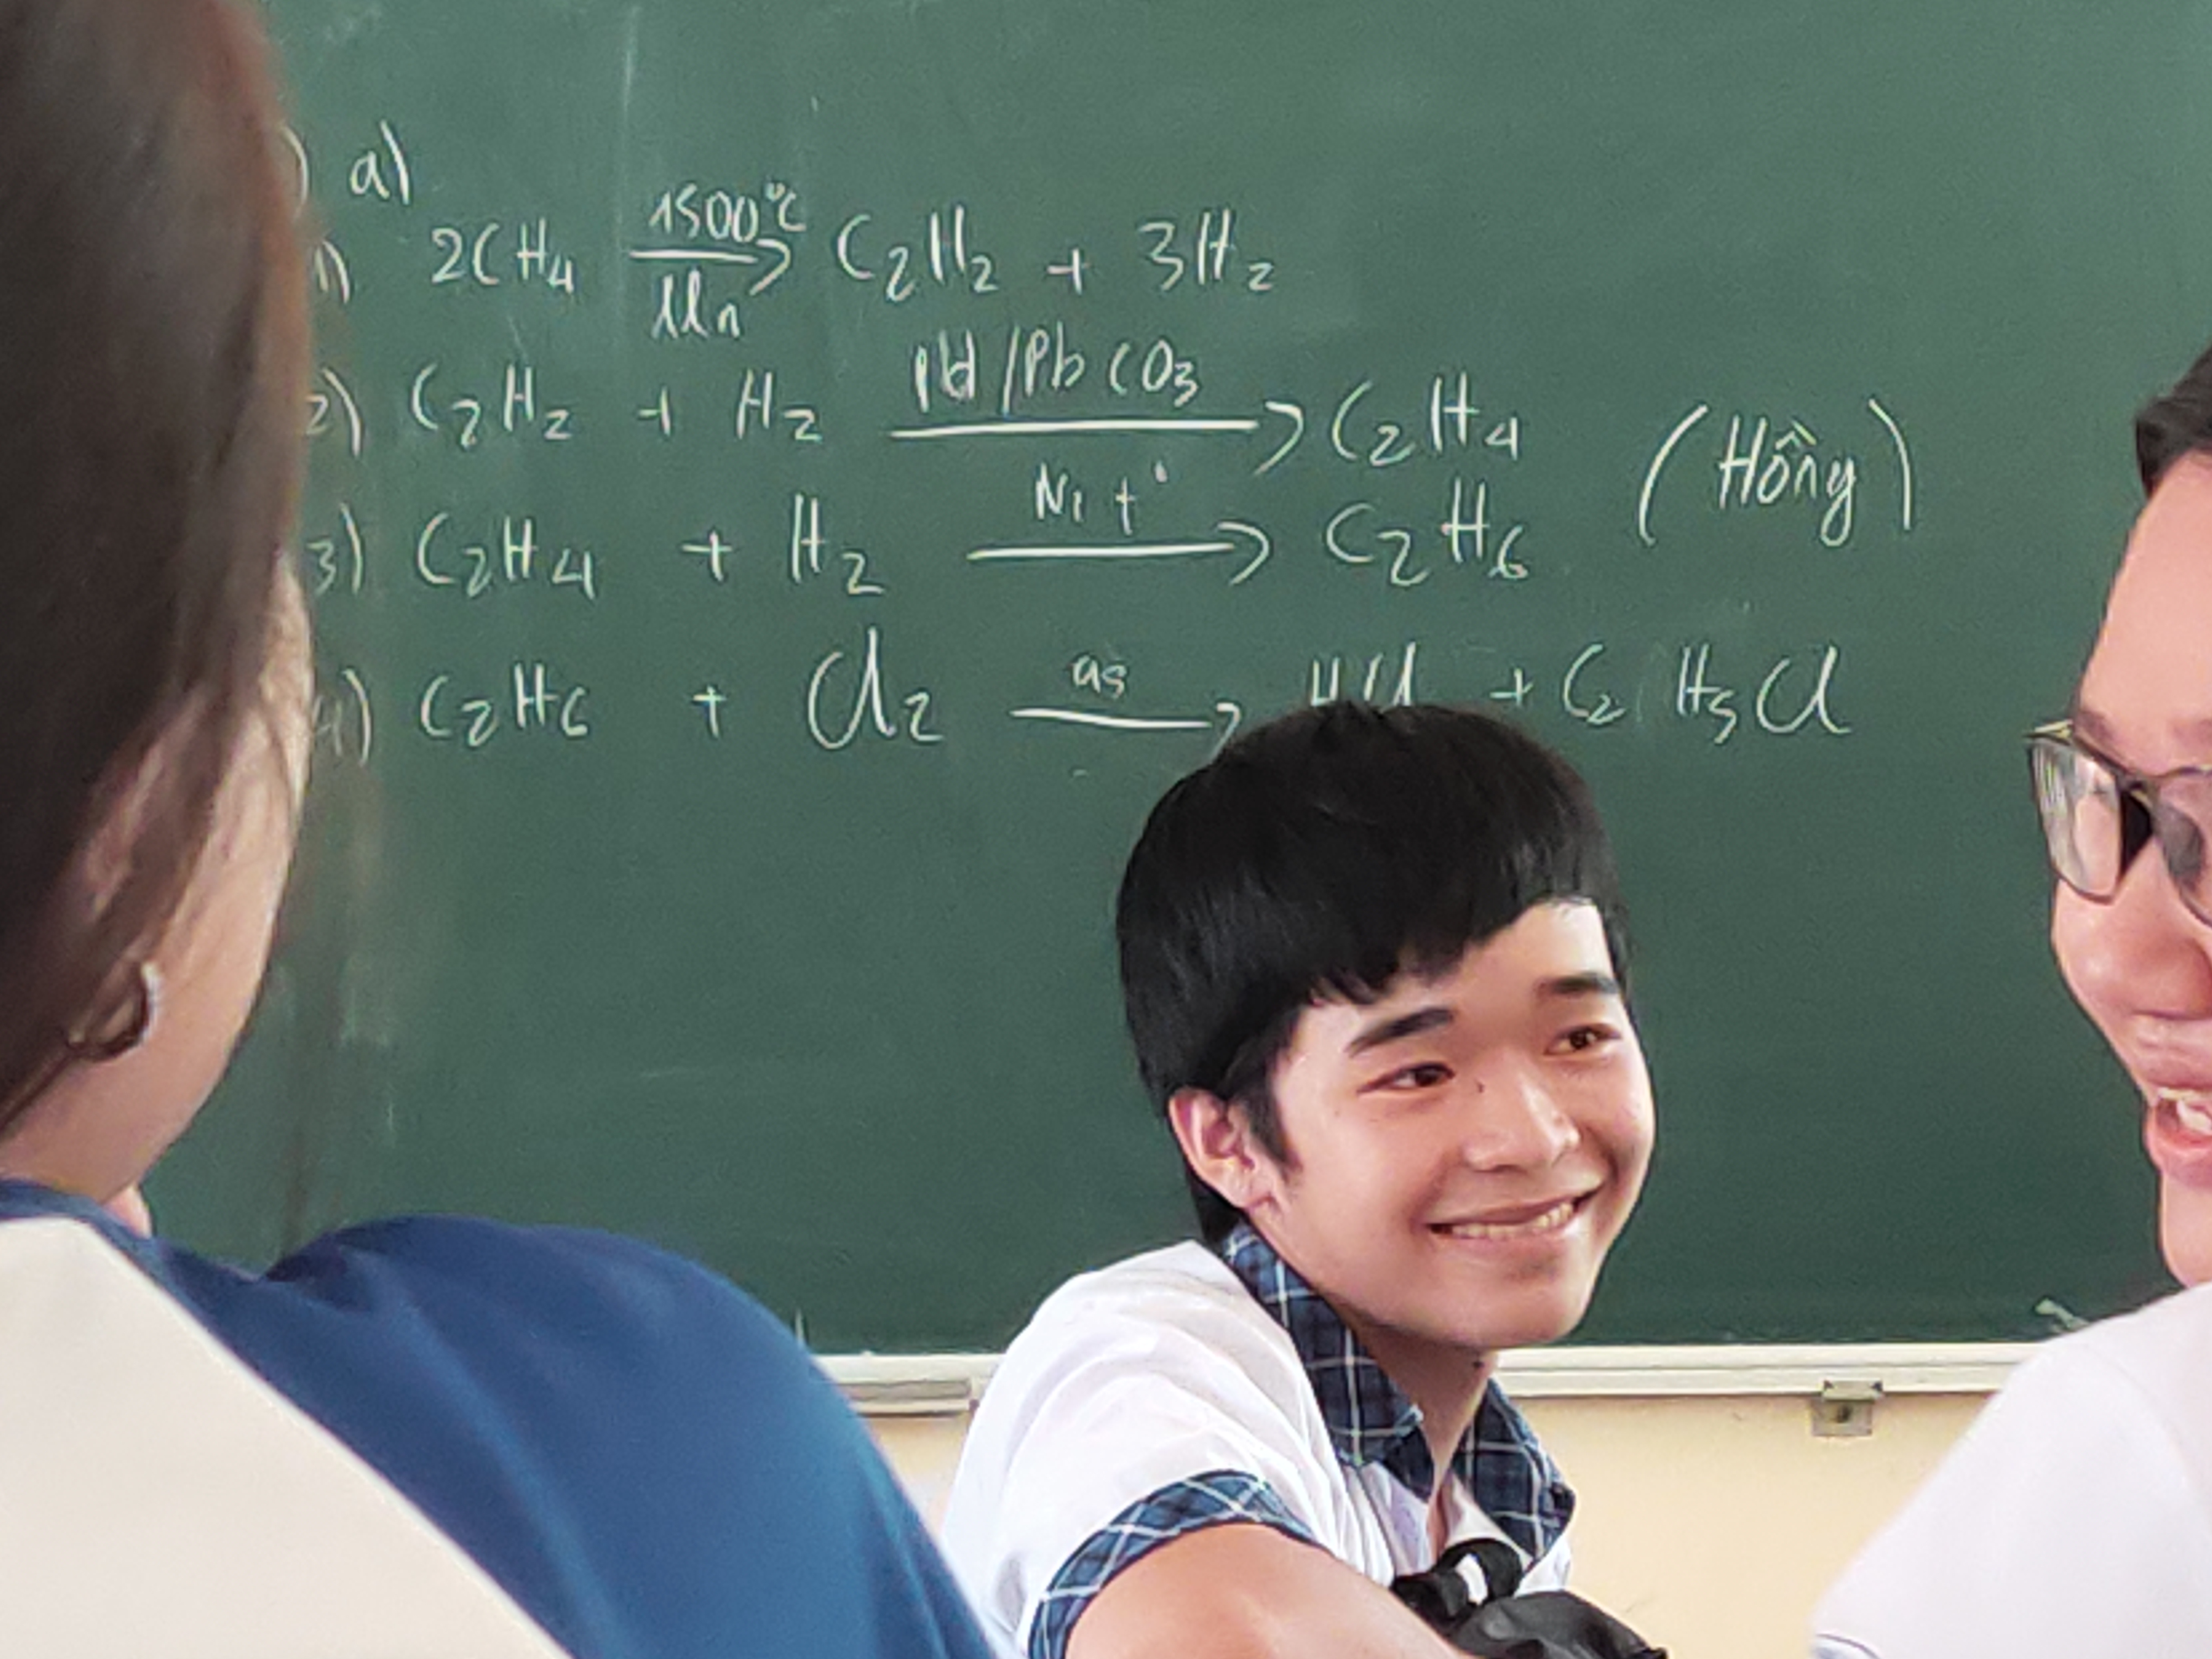 ) a)
1) 2CH₄ 1500°C → lln C₂H₂ + 3H₂
2) C₂H₂ + H₂ Pd/PbCO₃ → C₂H₄
(Hồng)
3) C₂H₄ + H₂ Ni t° → C₂H₆
4) C₂H₆ + Cl₂ as → HCl + C₂H₅Cl